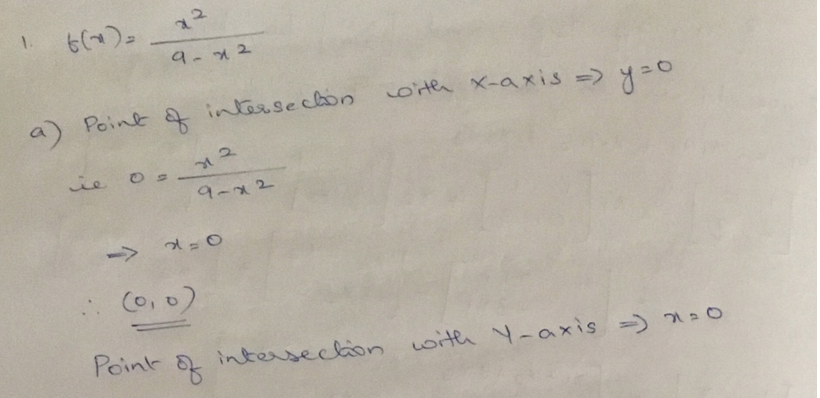 1. f(x) = x² / 9 - x²
a) Point of intersection with x-axis ⇒ y=0
ie 0 = x² / 9 - x²
⇒ x = 0
∴ (0, 0)
Point of intersection with Y-axis ⇒ x = 0